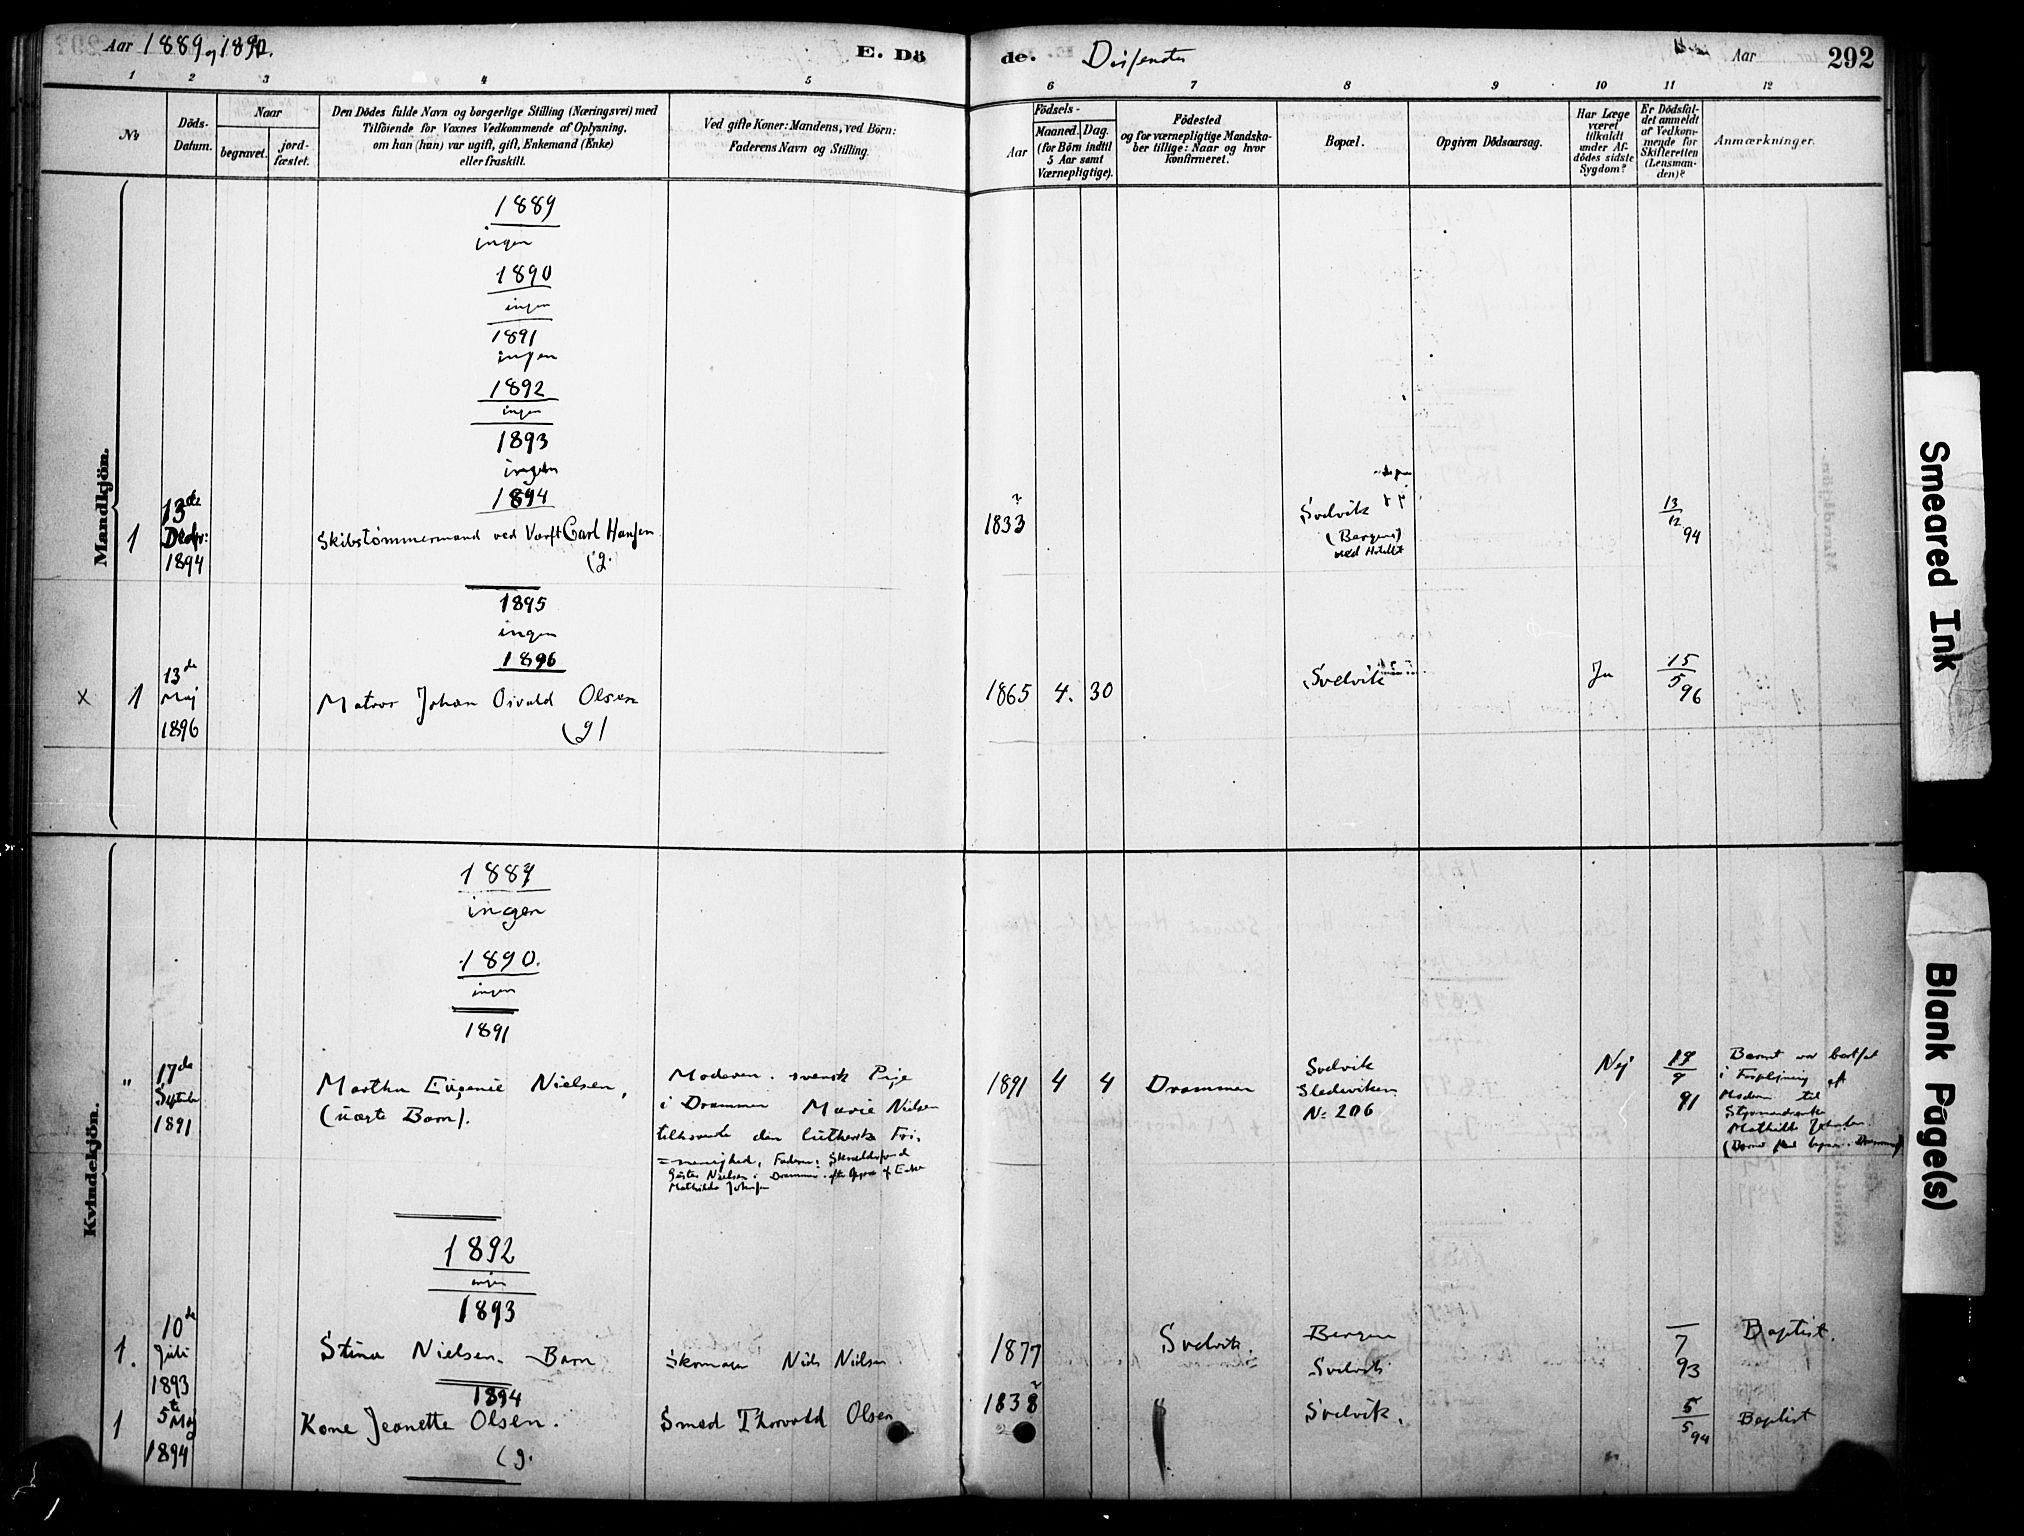 Aar 1889 og 1890.
E. Dö
de.
Dissenter
Aar
292
1 2 3 4 5 6 7 8 9 10 11 12
No
Döds-
Datum.
Naar
begravet.
jord-
fæstet.
Den Dödes fulde Navn og borgerlige Stilling (Næringsvei) med
Tilföiende for Voxnes Vedkommende af Oplysning,
om han (hun) var ugift, gift, Enkemand (Enke)
eller fraskilt.
Ved gifte Koner: Mandens, ved Börn:
Faderens Navn og Stilling.
Födsels-
Aar
Maaned. Dag.
(for Börn indtil
5 Aar samt
Værnepligtige).
Födested
og for værnepligtige Mandska-
ber tillige: Naar og hvor
konfirmeret.
Bopæl.
Opgiven Dödsaarsag.
Har Læge
været
tilkaldt
under Af-
dödes sidste
Sygdom?
Er Dödsfal-
det anmeldt
af Vedkom-
mende for
Skifteretten
(Lensman-
den)?
Anmærkninger.
Mandkjön.
1889
ingen
1890
ingen
1891
ingen
1892
ingen
1893
ingen
1894
1
13de
Decbr:
1894
Skibstömmermand ved Værft Carl Hansen
(g.
1833
Svelvik
(Bergens)
ved Hotellet
13
12 94
1895
ingen
1896
x 1
13de
Maj
1896
Matros Johan Osvald Olsen
(g)
1865 4. 30
Svelvik
Ja
15
5 96
Kvindekjön.
1889
ingen
1890.
ingen
1891
"
17de
Septbr
1891
Martha Eugenie Nielsen,
(uægte Barn).
Moderen. svensk Pige
i Drammen Marie Nielsen
tilhørende den lutherske Fri-
=menighed, Fader:
Nielsen i Drammen efter Opgave af Enke
Mathilde Johnsen
1891 4 4
Drammen
Svelvik
No 206
Nej
17
9
91
Barnet var bortsat
i Forplejning af
Moderen til
Styrmandsenke
Mathilde Johnsen.
1892
ingen
1893
1.
10de
Juli
1893
Stina Nielsen. Barn
Skomager Niels Nielsen
1877
Svelvik.
Bergen
Svelvik
7
93
Baptist.
1894
1
5te Maj
1894
Kone Jeanette Olsen.
(g.
Smed Thorvald Olsen
1838
"
Svelvik.
5
5 94
Baptist
Smeared Ink
Blank Page(s)